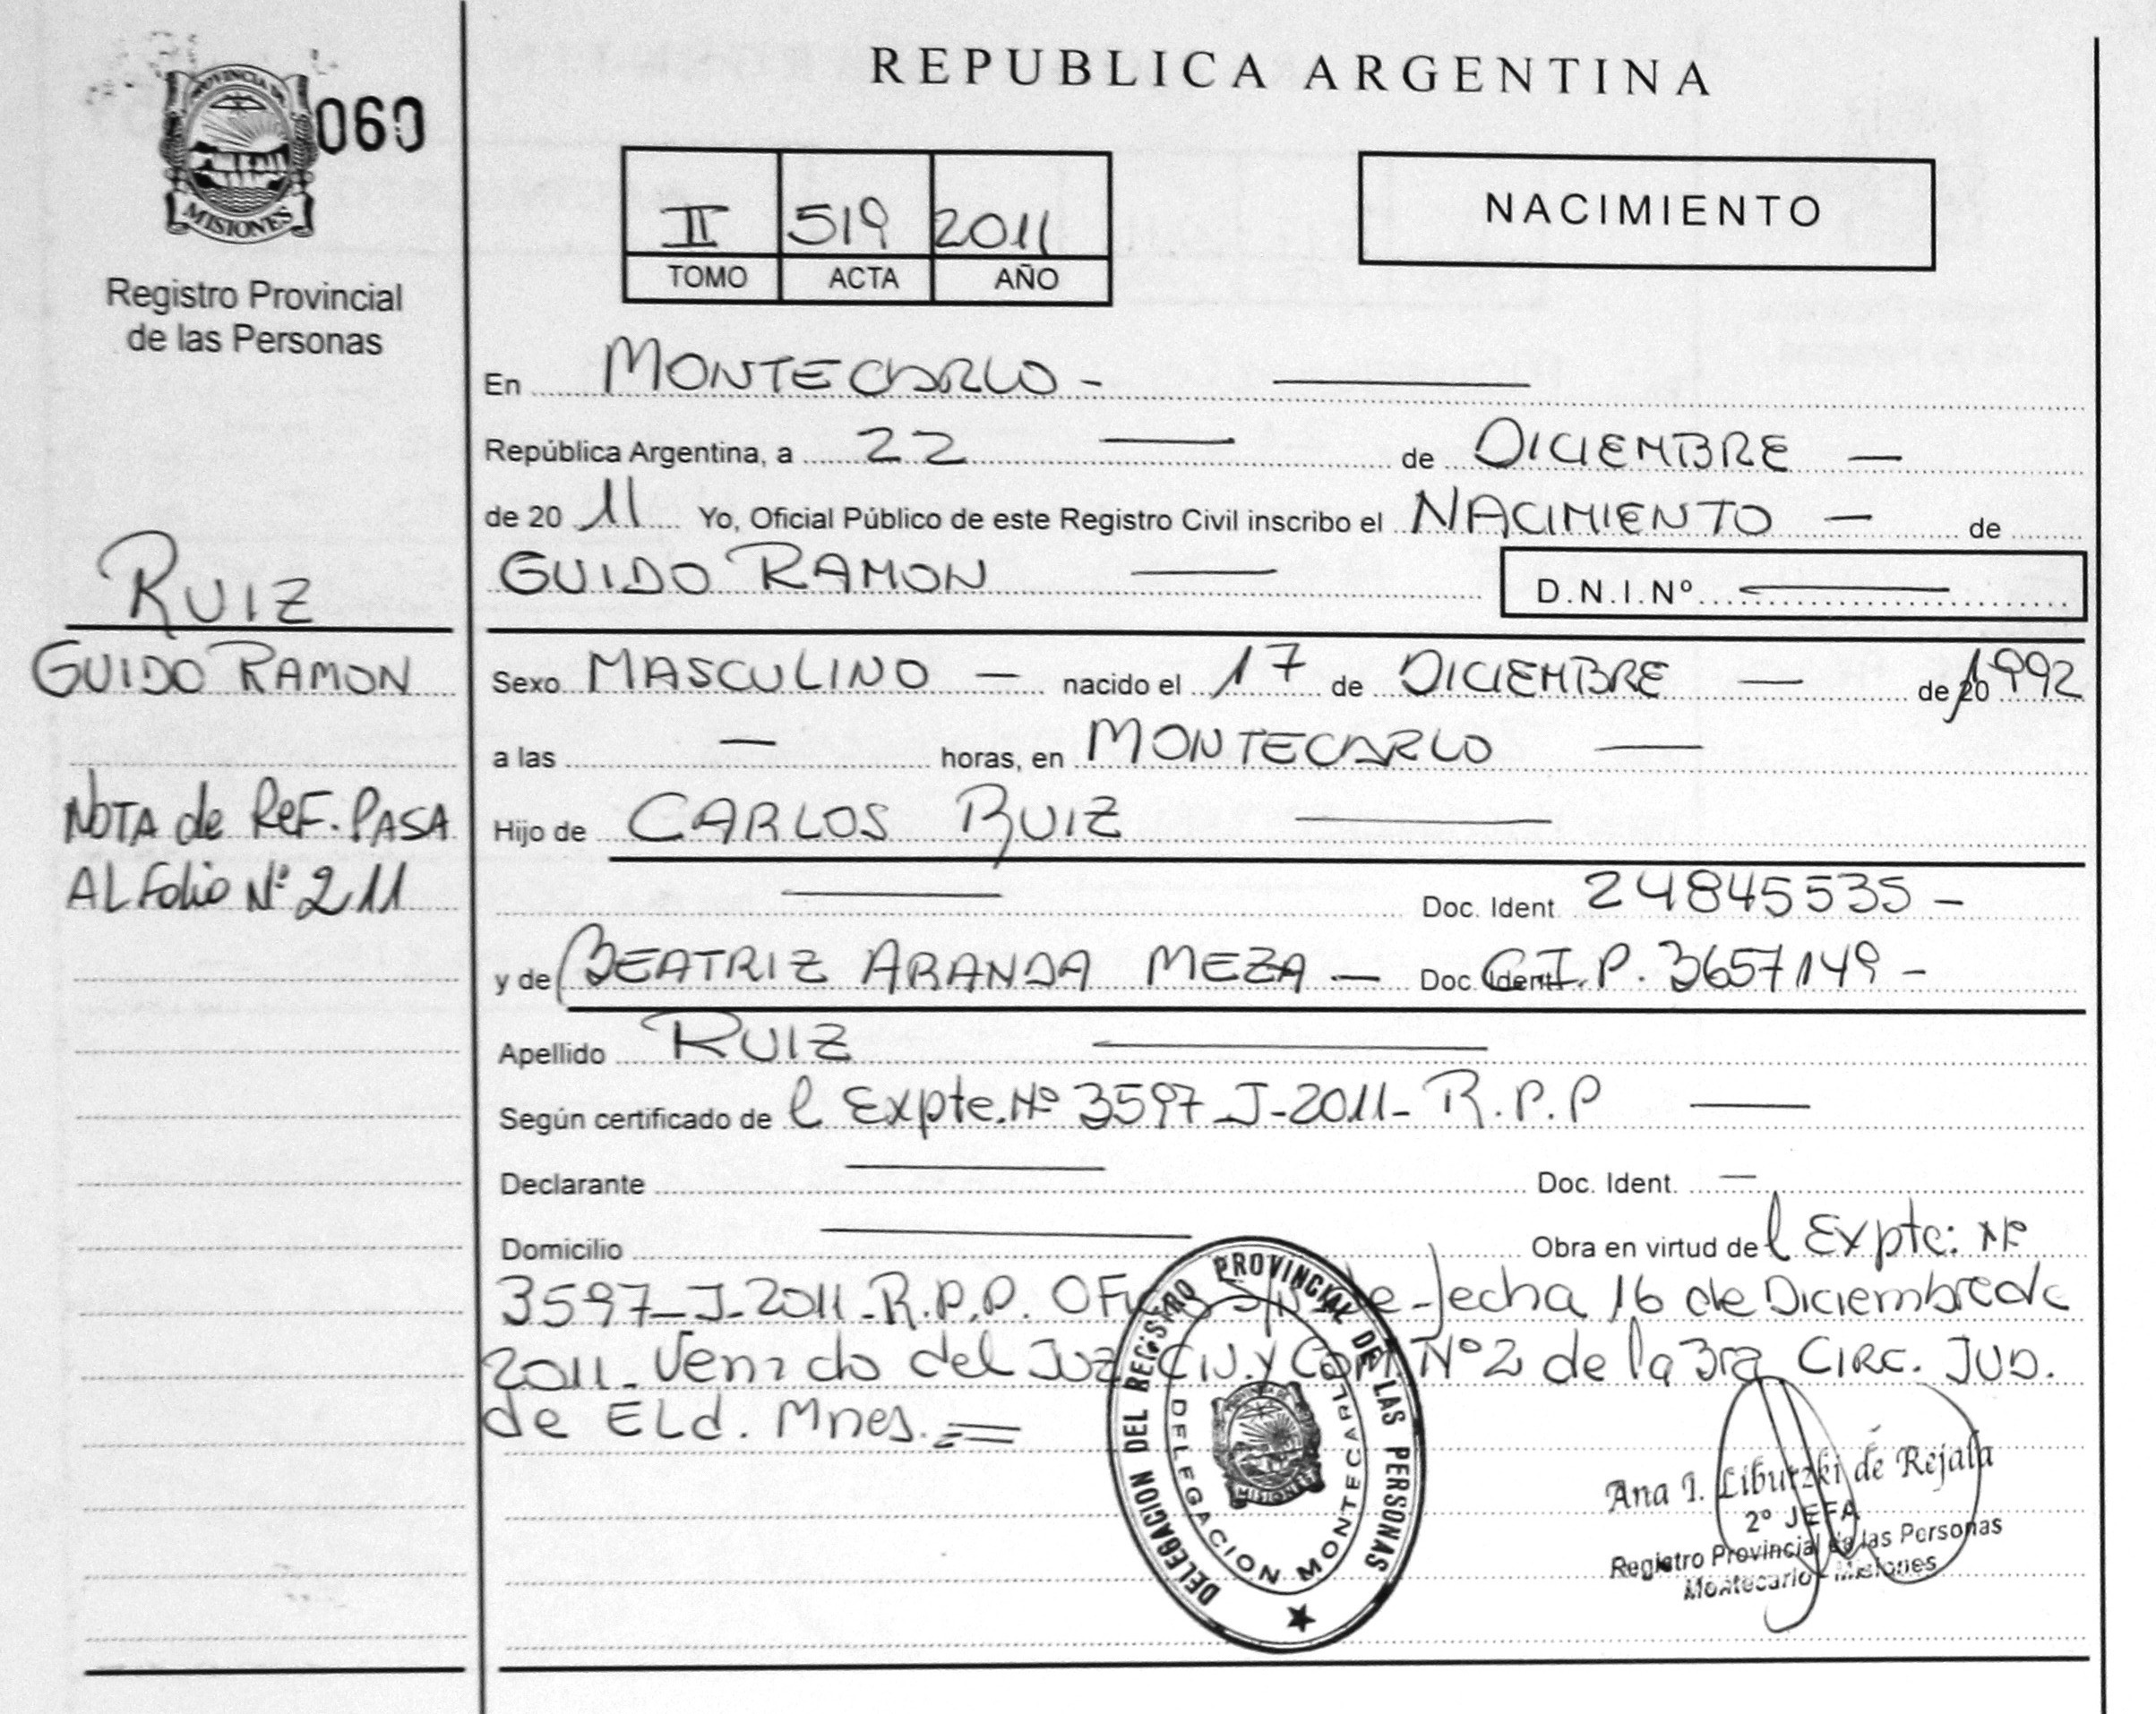 REPUBLICA ARGENTINA
PROVINCIA DE
MISIONES
060
Registro Provincial
de las Personas
II 519 2011
TOMO ACTA AÑO
NACIMIENTO
En MONTECARLO -
República Argentina, a 22 — de DICIEMBRE —
de 20 11 Yo, Oficial Público de este Registro Civil inscribo el NACIMIENTO — de
GUIDO RAMON — D.N.I.Nº —
RUIZ
GUIDO RAMON
NOTA de REF. PASA
AL Folio Nº 211
Sexo MASCULINO — nacido el 17 de DICIEMBRE — de 20 1992
a las — horas, en MONTECARLO —
Hijo de CARLOS RUIZ —
— Doc. Ident 24845535 -
y de BEATRIZ ARANDA MEZA — Doc. Ident C.I.P. 3657149 -
Apellido RUIZ —
Según certificado de l Expte. Nº 3597-J-2011- R.P.P —
Declarante — Doc. Ident. —
Domicilio — Obra en virtud de l Expte: Nº
3597-J-2011-R.P.P. de fecha 16 de Diciembre de
2011- Venido del Juz. Civ. y Com. Nº 2 de la 3ra CIRC. JUD.
de ELd. Mnes. =
DELEGACION DEL REGISTRO PROVINCIAL DE LAS PERSONAS
DELEGACION MONTECARLO
MISIONES
Ana I. Liburzki de Rejala
2º JEFA
Registro Provincial de las Personas
Montecarlo - Misiones